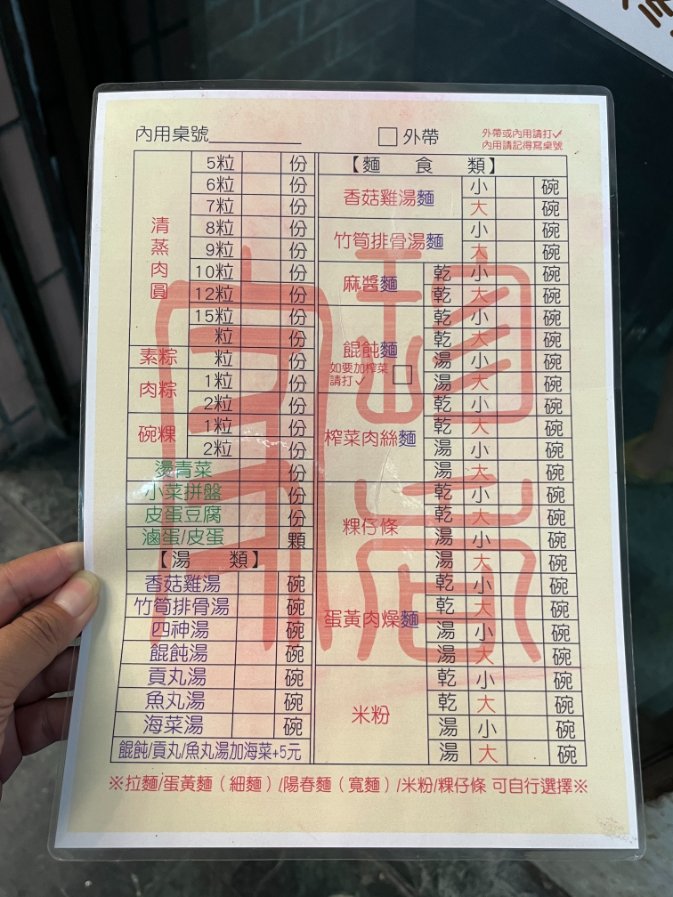 內用桌號
外帶
外帶或內用請打✓
內用請記得寫桌號
清蒸肉圓
5粒 份
6粒 份
7粒 份
8粒 份
9粒 份
10粒 份
12粒 份
15粒 份
粒 份
素粽 粒 份
肉粽
1粒 份
2粒 份
碗粿
1粒 份
2粒 份
燙青菜 份
小菜拼盤 份
皮蛋豆腐 份
滷蛋/皮蛋 顆
【湯 類】
香菇雞湯 碗
竹筍排骨湯 碗
四神湯 碗
餛飩湯 碗
貢丸湯 碗
魚丸湯 碗
海菜湯 碗
餛飩/貢丸/魚丸湯加海菜+5元
【麵 食 類】
香菇雞湯麵
小 碗
大 碗
竹筍排骨湯麵
小 碗
大 碗
麻醬麵
乾 小 碗
乾 大 碗
餛飩麵
如要加榨菜
請打✓
乾 小 碗
乾 大 碗
湯 小 碗
湯 大 碗
榨菜肉絲麵
乾 小 碗
乾 大 碗
湯 小 碗
湯 大 碗
粿仔條
乾 小 碗
乾 大 碗
湯 小 碗
湯 大 碗
蛋黃肉燥麵
乾 小 碗
乾 大 碗
湯 小 碗
湯 大 碗
米粉
乾 小 碗
乾 大 碗
湯 小 碗
湯 大 碗
※拉麵/蛋黃麵（細麵）/陽春麵（寬麵）/米粉/粿仔條 可自行選擇※